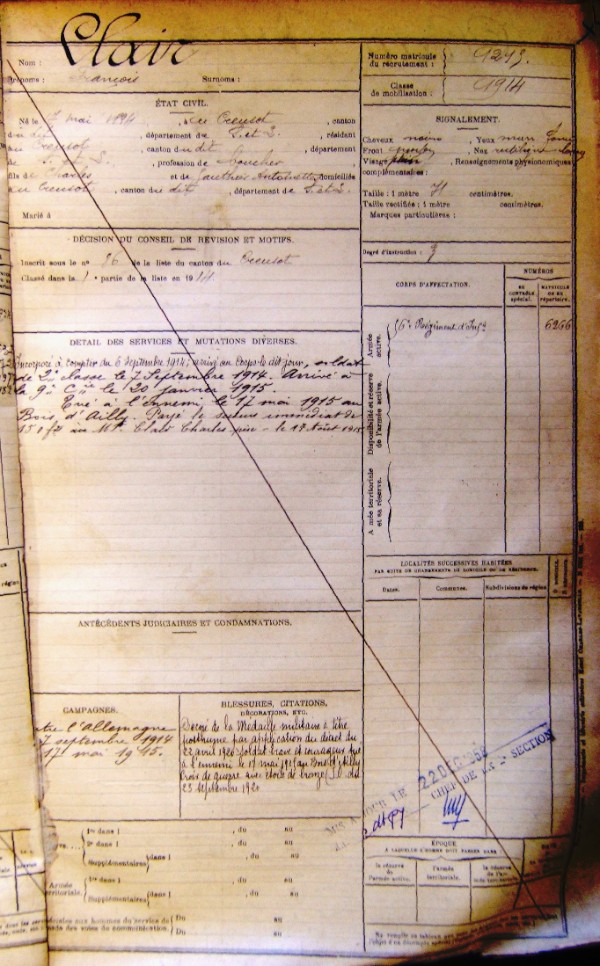 Nom : Clair
Prénoms : François Surnoms :
Numéro matricule du recrutement : 1213.
Classe de mobilisation : 1914
ÉTAT CIVIL.
Né le 7 mai 1894, à au Creusot, canton
du dit, département de S. et L., résidant
au Creusot, canton du dit, département
de S. et L., profession de
fils de Charles et de Gauthier Antoinette domiciliés
au Creusot, canton du dit, département de S. et L.
Marié à
SIGNALEMENT.
Cheveux Yeux
Front Nez rectiligne
Visage plein, Renseignements physionomiques
complémentaires :
Taille : 1 mètre 71 centimètres.
Taille rectifiée : 1 mètre centimètres.
Marques particulières :
Degré d'instruction : 3
DÉCISION DU CONSEIL DE RÉVISION ET MOTIFS.
Inscrit sous le n° 36 de la liste du canton du Creusot
Classé dans la 1e partie de la liste en 1914
CORPS D'AFFECTATION.
NUMÉROS
AU CONTRÔLE spécial.
MATRICULE OU AU répertoire.
Armée active.
56e Régiment d'Infie
6266
Disponibilité et réserve de l'armée active.
Armée territoriale et sa réserve.
DÉTAIL DES SERVICES ET MUTATIONS DIVERSES.
Incorporé à compter du 6 septembre 1914, arrivé au Corps le dit jour, soldat
de 2e classe le 7 Septembre 1914. Arrivé à
la 9e Cie le 20 janvier 1915.
Tué à l'Ennemi le 17 mai 1915 au
Bois d'Ailly. Payé le secours immédiat de
150 f au Mr Clair Charles père - le 17 Août 1915
LOCALITÉS SUCCESSIVES HABITÉES
PAR SUITE DE CHANGEMENTS DE DOMICILE OU DE RÉSIDENCE.
Dates. Communes. Subdivisions de région
ANTÉCÉDENTS JUDICIAIRES ET CONDAMNATIONS.
CAMPAGNES.
contre l'Allemagne
7 septembre 1914
17 mai 1915.
BLESSURES, CITATIONS,
DÉCORATIONS, ETC.
Décoré de la Médaille militaire à titre
posthume par application du décret du
22 avril 1920 soldat brave et courageux tué
à l'ennemi le 17 mai 1915 au Bois d'Ailly
Croix de guerre avec étoile de bronze J.O. du
23 Septembre 1920
MIS A JOUR LE 22 DEC 1958
CHEF DE LA 2e SECTION
1re dans l , du au
2e dans l , du au
Supplémentaires dans l , du au
Armée territoriale.
1re dans l , du au
2e dans l , du au
Supplémentaires dans l , du au
Du au
Du au
ÉPOQUE
A LAQUELLE L'HOMME DOIT PASSER DANS
la réserve de l'armée active.
l'armée territoriale.